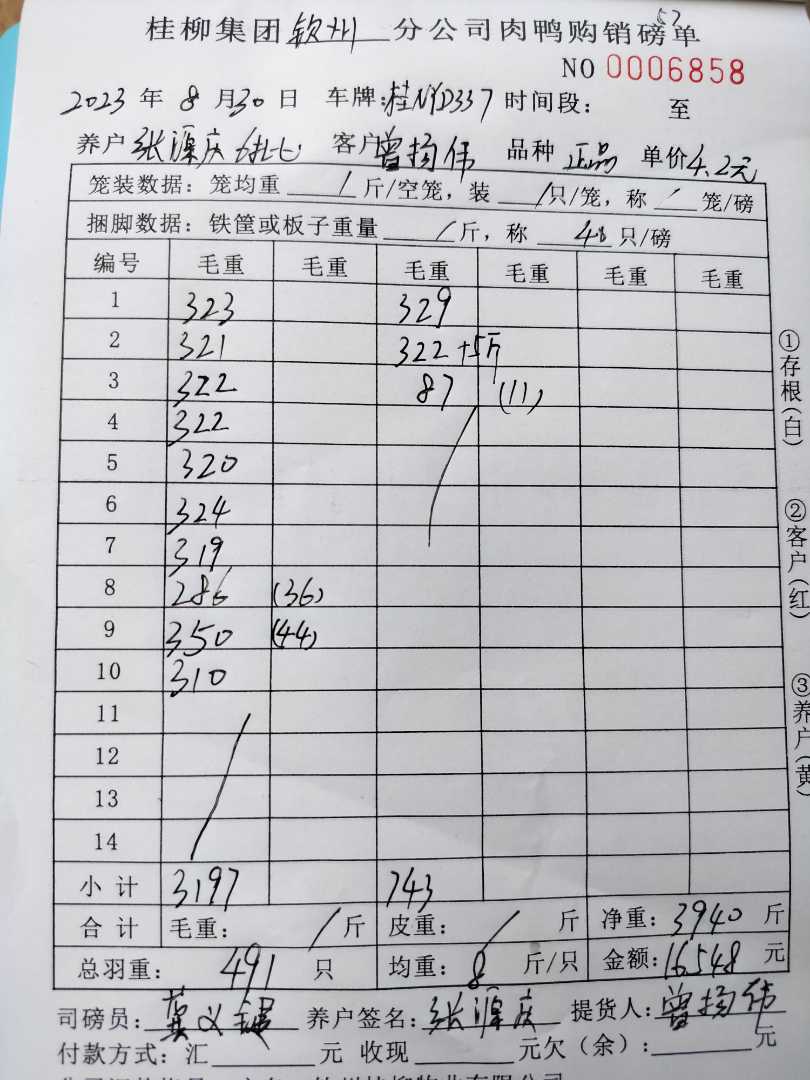 桂柳集团钦州分公司肉鸭购销磅单
57
NO 0006858
2023 年 8 月 30 日 车牌:桂NYD337 时间段: 至
养户 张源庆 客户 曾扬伟 品种 正品 单价 4.2元
笼装数据: 笼均重 / 斤/空笼, 装 / 只/笼, 称 / 笼/磅
捆脚数据: 铁筐或板子重量 / 斤, 称 40 只/磅
编号 毛重 毛重 毛重 毛重 毛重 毛重
1 323 329
2 321 322 +5斤
3 322 87 (11)
4 322
5 320
6 324
7 319
8 286 (36)
9 350 (44)
10 310
11
12
13
14
小计 3197 743
合计 毛重: / 斤 皮重: / 斤 净重: 3940 斤
总羽重: 491 只 均重: 8 斤/只 金额: 16548 元
司磅员: 龚义 养户签名: 张源庆 提货人: 曾扬伟
付款方式: 汇 元 收现 元欠(余): 元
①存根(白)
②客户(红)
③养户(黄)